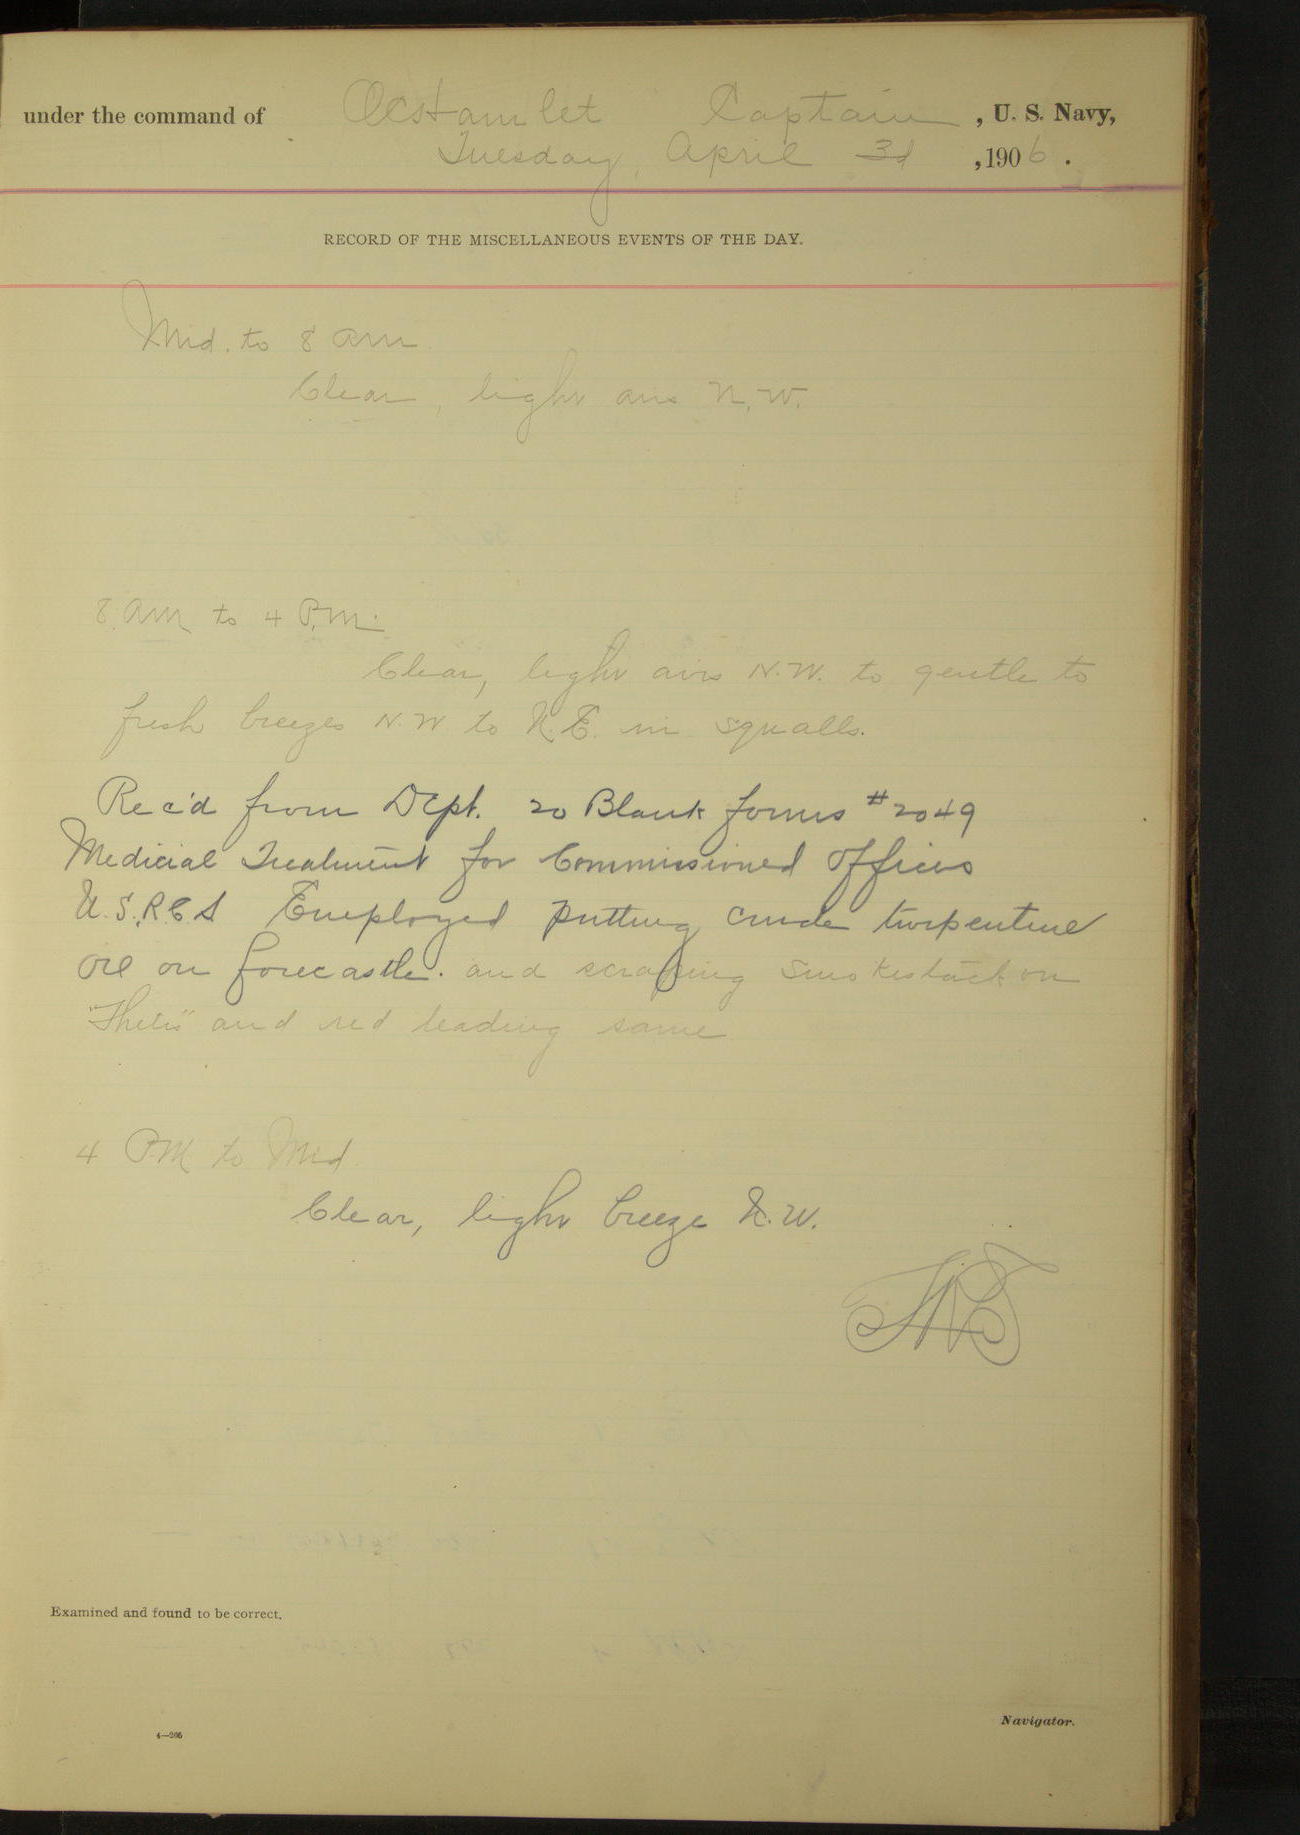 under the command of O C Hamlet Captain, U. S. Navy,
Tuesday, April 3d, 1906.
RECORD OF THE MISCELLANEOUS EVENTS OF THE DAY.
Mid. to 8 am
Clear, light airs N.W.
8 am to 4 P.M.
Clear, light airs N.W. to gentle to
fresh breezes N.W to N.E. in squalls.
Rec'd from Dept. 20 Blank forms #2049
Medicial Treatment for Commissioned Officers
U.S.R.C.S Employed putting crude turpentine
oil on forecastle. and scraping smokestack on
"Thetis" and red leading same
4 PM to Mid
Clear, light breeze N.W.
Examined and found to be correct.
Navigator.
4—206